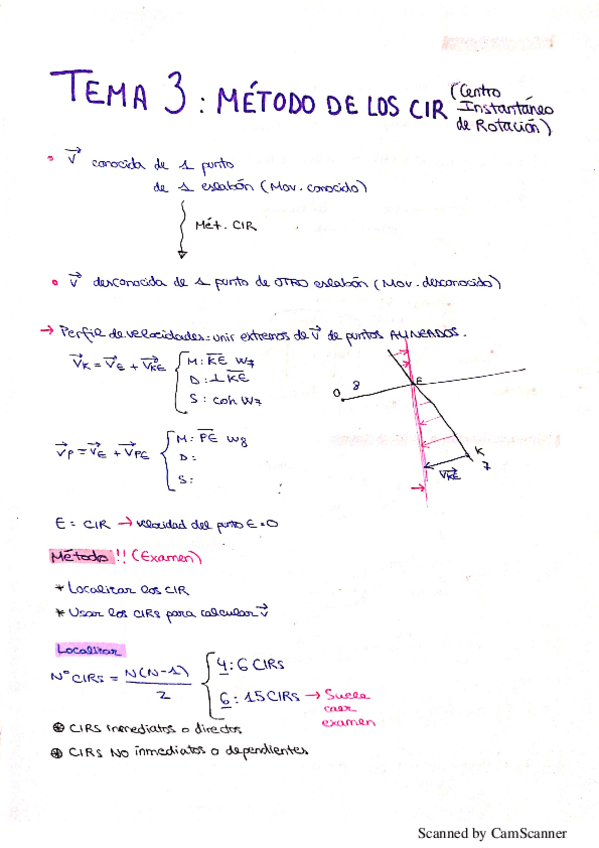 TEMA 3 : MÉTODO DE LOS CIR (Centro Instantáneo de Rotación)
• v conocida de 1 punto
de 1 eslabón (Mov. conocido)
Mét. CIR
• v desconocida de 1 punto de OTRO eslabón (Mov. desconocido)
→ Perfil de velocidades: unir extremos de v de puntos ALINEADOS.
VK = VE + VKE { M: KE W7
D: ⊥ KE
S: con W7
O 8 E
K
7
VKE
VP = VE + VPE { M: PE W8
D:
S:
E = CIR → velocidad del punto E=0
Método !! (Examen)
* Localizar los CIR
* Usar los CIRs para calcular v
Localizar
Nº CIRs = N(N-1) / 2 { 4: 6 CIRs
6: 15 CIRs → Suele
caer
examen
⊛ CIRS inmediatos o directos
⊛ CIRS NO inmediatos o dependientes
Scanned by CamScanner